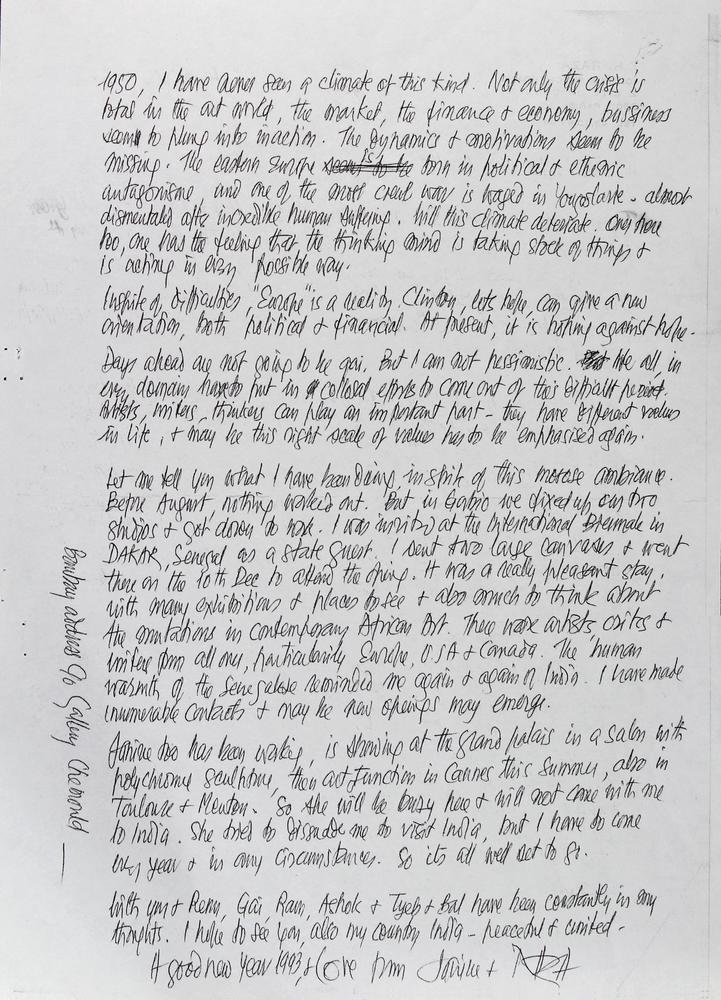 1950, I have never seen a climate of this kind. Not only the crisis is
total in the art world, the market, the finance & economy, bussiness
seems to plung into inaction. The Dynamics & motivations seem to be
missing. The eastern Europe is born in political & ethenic
antagonisme, and one of the most cruel war is waged in Yougoslavie - almost
dismentaled after incredible human suffering. Will this climate deteriate. Over here
too, one has the feeling that the thinking mind is taking stock of things &
is acting in every possible way.
Inspite of difficulties, "Europe" is a reality. Clinton, lets hope, can give a new
orientation, both political & financial. At present, it is hoping against hope.
Days ahead are not going to be gai. But I am not pessionistic. We all, in
every domain have to put in collosal efforts to come out of this difficult period.
Artists, writers, thinkers can play an important part - they have different values
in life, & may be this right scale of values has to be emphasised again.
Let me tell you what I have been doing, inspite of this morose ambiance.
Before August, nothing worked out. But in Gorbio we fixed up our two
studios & got down to work. I was invited at the International Biennale in
DAKAR, Senegal as a state guest. I sent two large canvases & went
there on the 10th Dec to attend the opening. It was a really pleasant stay,
with many exhibitions & places to see & also much to think about
the mutations in contemporary African Art. There were artists, critics &
writers from all over, particularly Europe, USA & Canada. The human
warmth of the Senegalese reminded me again & again of India. I have made
innumerable contacts & may be new openings may emerge.
Janine too has been working, is showing at the Grand palais in a salon with
polychrome sculpture, then art function in Cannes this summer, also in
Toulouse & Menton. So she will be busy here & will not come with me
to India. She tried to dissuade me to visit India, but I have to come
every year & in any circumstances. So its all well set to go.
With you & Renu, Gai, Ram, Ashok & Tyeb & Bal have been constantly in my
thoughts. I hope to see you, also my country India - peaceful & united -
A good new Year 1993, & Love from Janine & RAZA
Bombay address c/o Gallery Chemould